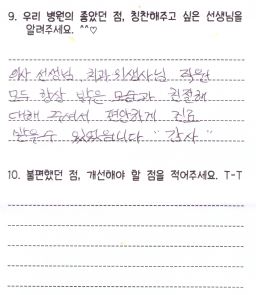 9. 우리 병원의 좋았던 점, 칭찬해주고 싶은 선생님을
알려주세요. ^^♡
의사 선생님, 치과위생사님 직원
모두 항상 밝은 모습과 친절해
대해 주셔서 편안하게 진료
받을수 있었습니다 "감사"
10. 불편했던 점, 개선해야 할 점을 적어주세요. T-T